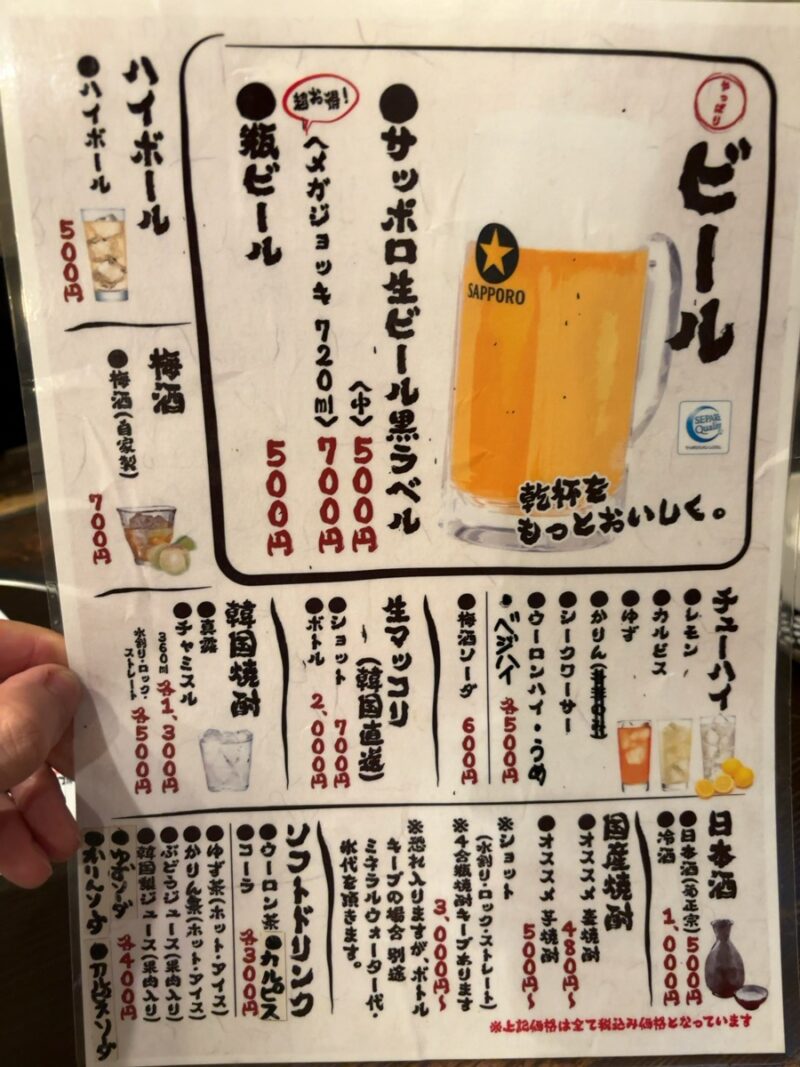 やっぱり
ビール
SAPPORO
乾杯を
もっとおいしく。
●サッポロ生ビール黒ラベル
〈中〉500円
超お得！
〈メガジョッキ 720ml〉700円
●瓶ビール 500円
ハイボール
●ハイボール 500円
梅酒
●梅酒(自家製) 700円
チューハイ
●レモン
●カルピス
●ゆず
●かりん
●シークワーサー
●ウーロンハイ・うめ
●ベジハイ 各500円
●梅酒ソーダ 600円
生マッコリ
(韓国直送)
●ショット 700円
●ボトル 2,000円
韓国焼酎
●真露
●チャミスル
360ml 各1,300円
水割り・ロック・
ストレート 各500円
日本酒
●日本酒(菊正宗) 500円
●冷酒 1,000円
国産焼酎
●オススメ 麦焼酎 480円~
●オススメ 芋焼酎 500円~
※ショット
(水割り・ロック・ストレート)
※4合瓶焼酎キープあります
3,000円~
※恐れ入りますが、ボトル
キープの場合 別途
ミネラルウォーター代・
氷代を頂きます。
ソフトドリンク
●ウーロン茶 ●カルピス
●コーラ 各300円
●ゆず茶(ホット・アイス)
●かりん茶(ホット・アイス)
●ぶどうジュース(果肉入り)
●韓国梨ジュース(果肉入り)
●ゆずソーダ 各400円
●かりんソーダ ●カルピスソーダ
※上記価格は全て税込み価格となっています